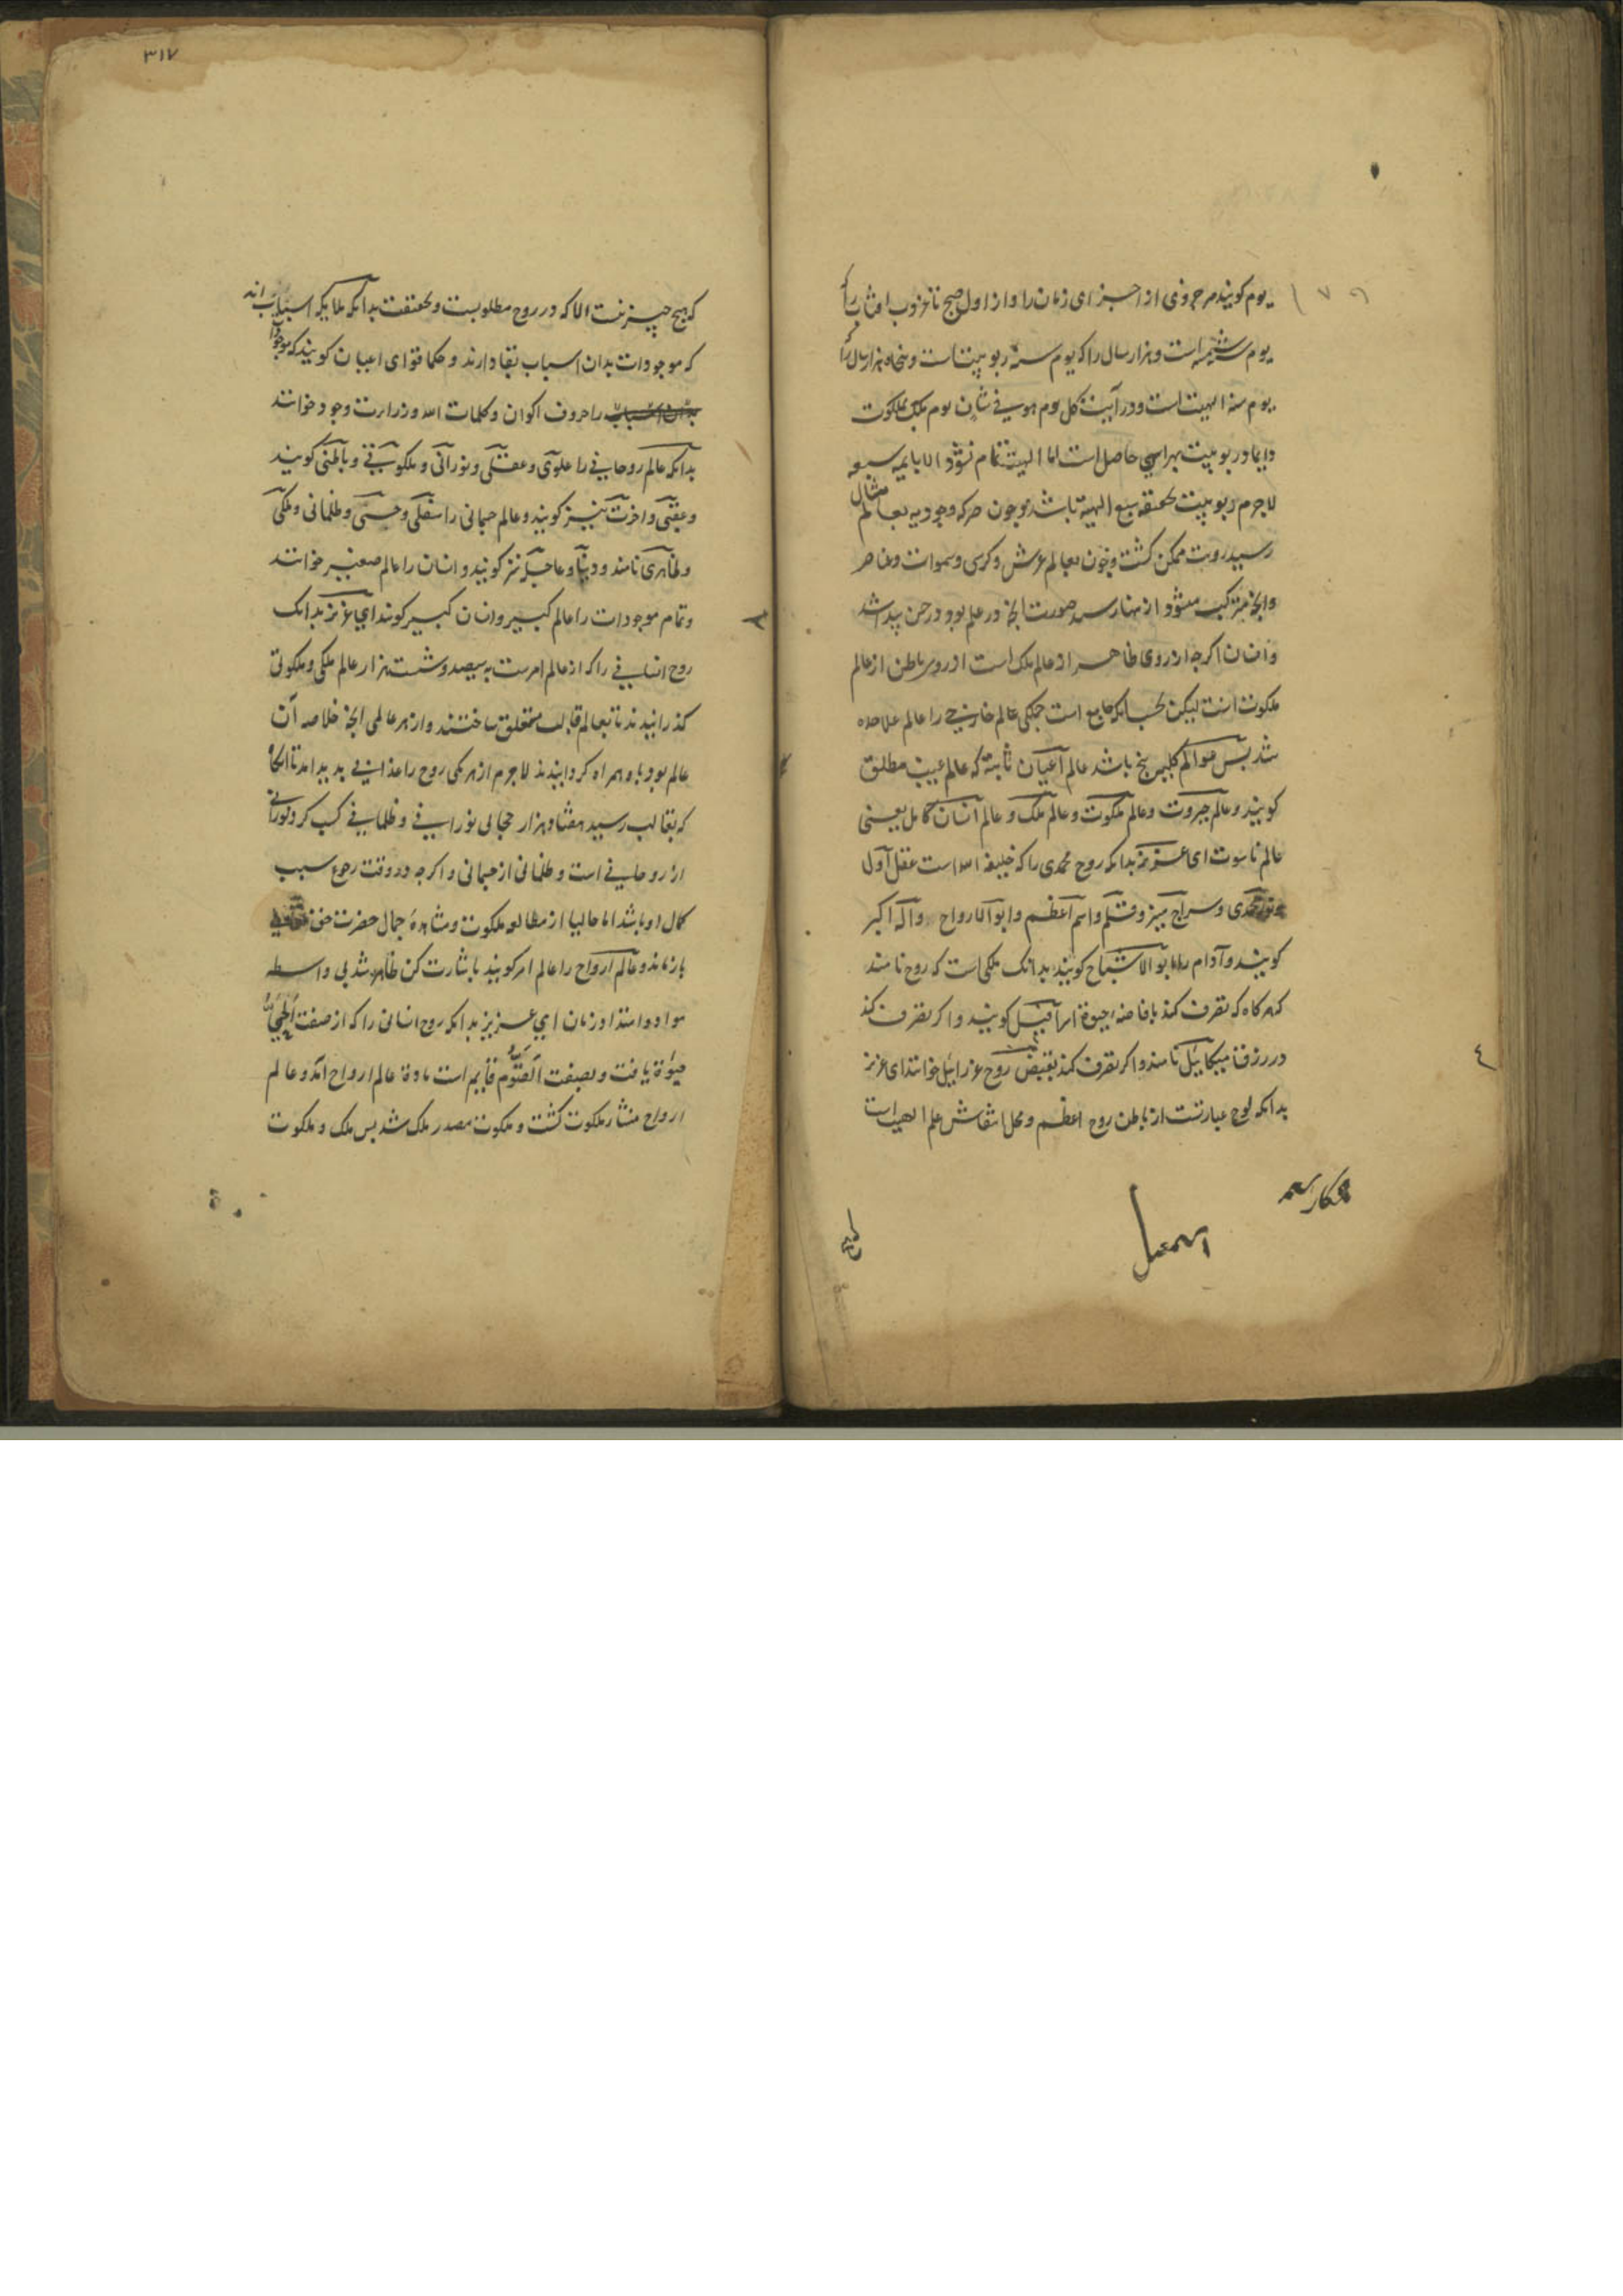 یوم کویند هر جزوی از اجزای زمان را و از اول صبح تا غروب افتاب را
یوم شمسیه است و هزار سال را که یوم سنه ربوبیت است و پنجاه هزار سال را
یوم سنه الهیت است و در آیت کل یوم هو فی شان یوم ملک ملکوت
دایما در ربوبیت حاصل است اما الهیت تمام نشود الا
لاجرم ربوبیت الهیة باشد و چون حرکه وجودیه بعالم مثال
رسید رویت ممکن کشت و چون بعالم عرش و کرسی و سموات و عناصر
صورت انچه در علم بود در حس پیدا شد
و انسان اکرچه از روی ظاهر از عالم ملک است از روی باطن از عالم
ملکوت است لیکن جامع است جملکی عالم را عالم علاحده
شد پس عوالم کلیه پنج باشد عالم اعیان ثابته که عالم غیب مطلق
کویند و عالم جبروت و عالم ملکوت و عالم ملک و عالم انسان کامل یعنی
عالم ناسوت ای عزیز بدانکه روح محمدی را که خلیفه الله است عقل اول
و نور محمدی و سراج منیر و قلم و اسم اعظم و ابو الارواح و اکبر
کویند و آدام را ابو الاشباح کویند بدانک ملکی است که روح نامند
که هر کاه که تصرف کند بافاضه حیوة اسرافیل کویند و اکر تصرف کند
در رزق میکائیل نامند و اکر تصرف کند بقبض روح عزرائیل خوانند ای عزیز
بدانکه لوح عبارتست از باطن روح اعظم و محل انتقاش علم الهی است
۳۱۷
که هیچ چیز نیست الا که در روح مطلوبست و بحقیقت بدانکه ملایکه اسباب اند
که موجودات بدان اسباب بقا دارند و حکما قوای اعیان کویند که موجودات
بدان اسباب را حروف اکوان و کلمات الله و ذرات وجود خوانند
بدانکه عالم روحانی را علوی و عقلی و نورانی و ملکوتی و باطنی کویند
و عقبی و اخرت نیز کویند و عالم جسمانی را سفلی و حسی و ظلمانی و ملکی
و ظاهری نامند و دنیا و عاجله نیز کویند و انسان را عالم صغیر خوانند
و تمام موجودات را عالم کبیر و انسان کبیر کویند ای عزیز بدانک
روح انسانی را که از عالم امرست به سیصد و شست هزار عالم ملکی و ملکوتی
کذرانیدند تا بعالم قالب متعلق ساختند و از هر عالمی انچه خلاصه آن
عالم بود با وهمراه کردانیدند لاجرم از هر یکی روح را غذایی پدید امد تا انکاه
که بقالب رسید هفتاد هزار حجابی نورانی و ظلمانی کسب کرد نورانی
از روحانی است و ظلمانی از جسمانی و اکرچه در وقت رجوع سبب
کمال او باشد اما حالیا از مطالعه ملکوت و مشاهدۀ جمال حضرت حق تعالی
بازماند و عالم ارواح را عالم امر کویند باشارت کن ظاهر شد بی واسطه
مواد و امتداد زمان ای عزیز بدانکه روح انسانی را که از صفت الحی
حیوة یافت و بصفت القیوم قایم است مادۀ عالم ارواح آمد و عالم
ارواح منشا ملکوت کشت و ملکوت مصدر ملک شد پس ملک و ملکوت